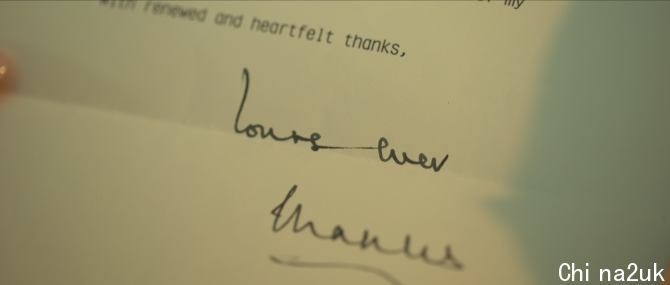 my
with renewed and heartfelt thanks,
Yours ever
Charles
Chi na2uk